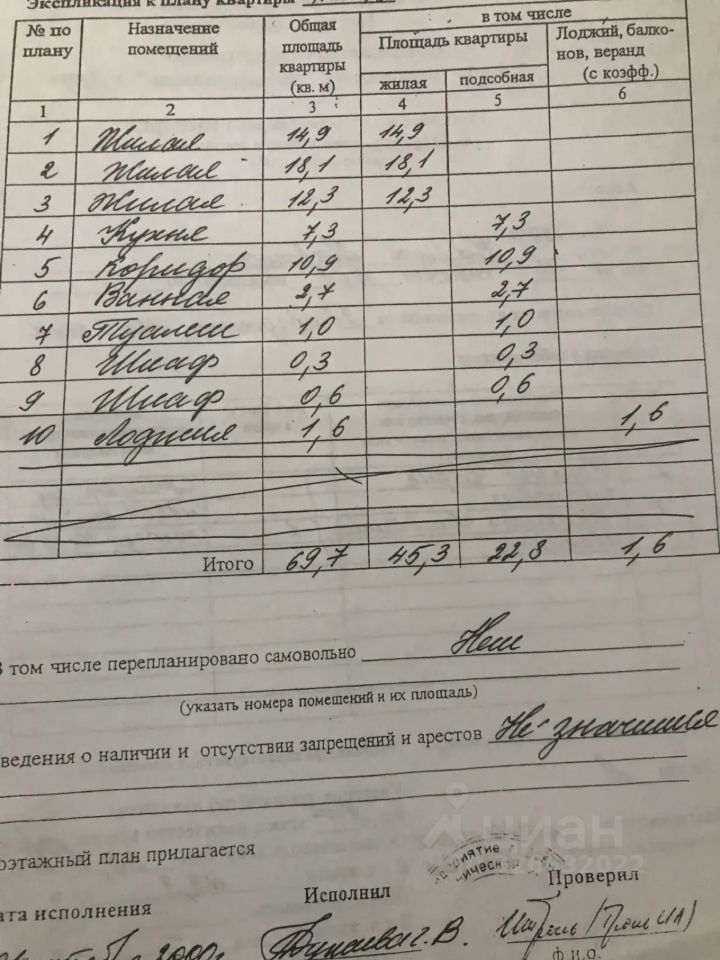 Экспликация к плану квартиры
№ по плану Назначение помещений Общая площадь квартиры (кв. м) в том числе
Площадь квартиры Лоджий, балконов, веранд (с коэфф.)
жилая подсобная
1 2 3 4 5 6
1 Жилая 14,9 14,9
2 Жилая 18,1 18,1
3 Жилая 12,3 12,3
4 Кухня 7,3 7,3
5 Коридор 10,9 10,9
6 Ванная 2,7 2,7
7 Туалет 1,0 1,0
8 Шкаф 0,3 0,3
9 Шкаф 0,6 0,6
10 Лоджия 1,6 1,6
Итого 69,7 45,3 22,8 1,6
В том числе перепланировано самовольно Нет
(указать номера помещений и их площадь)
ведения о наличии и отсутствии запрещений и арестов Не значится
оэтажный план прилагается
циан
ата исполнения Исполнил Проверил
2000г. г.В.
Ф.И.О.